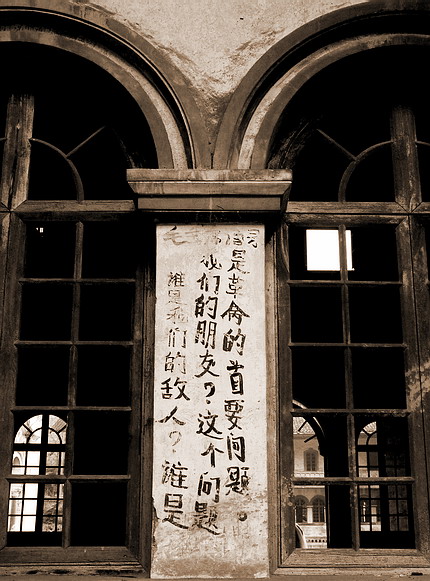 毛主席语录
誰是我们的敌人?誰是
我们的朋友?这个问题
是革命的首要问题。